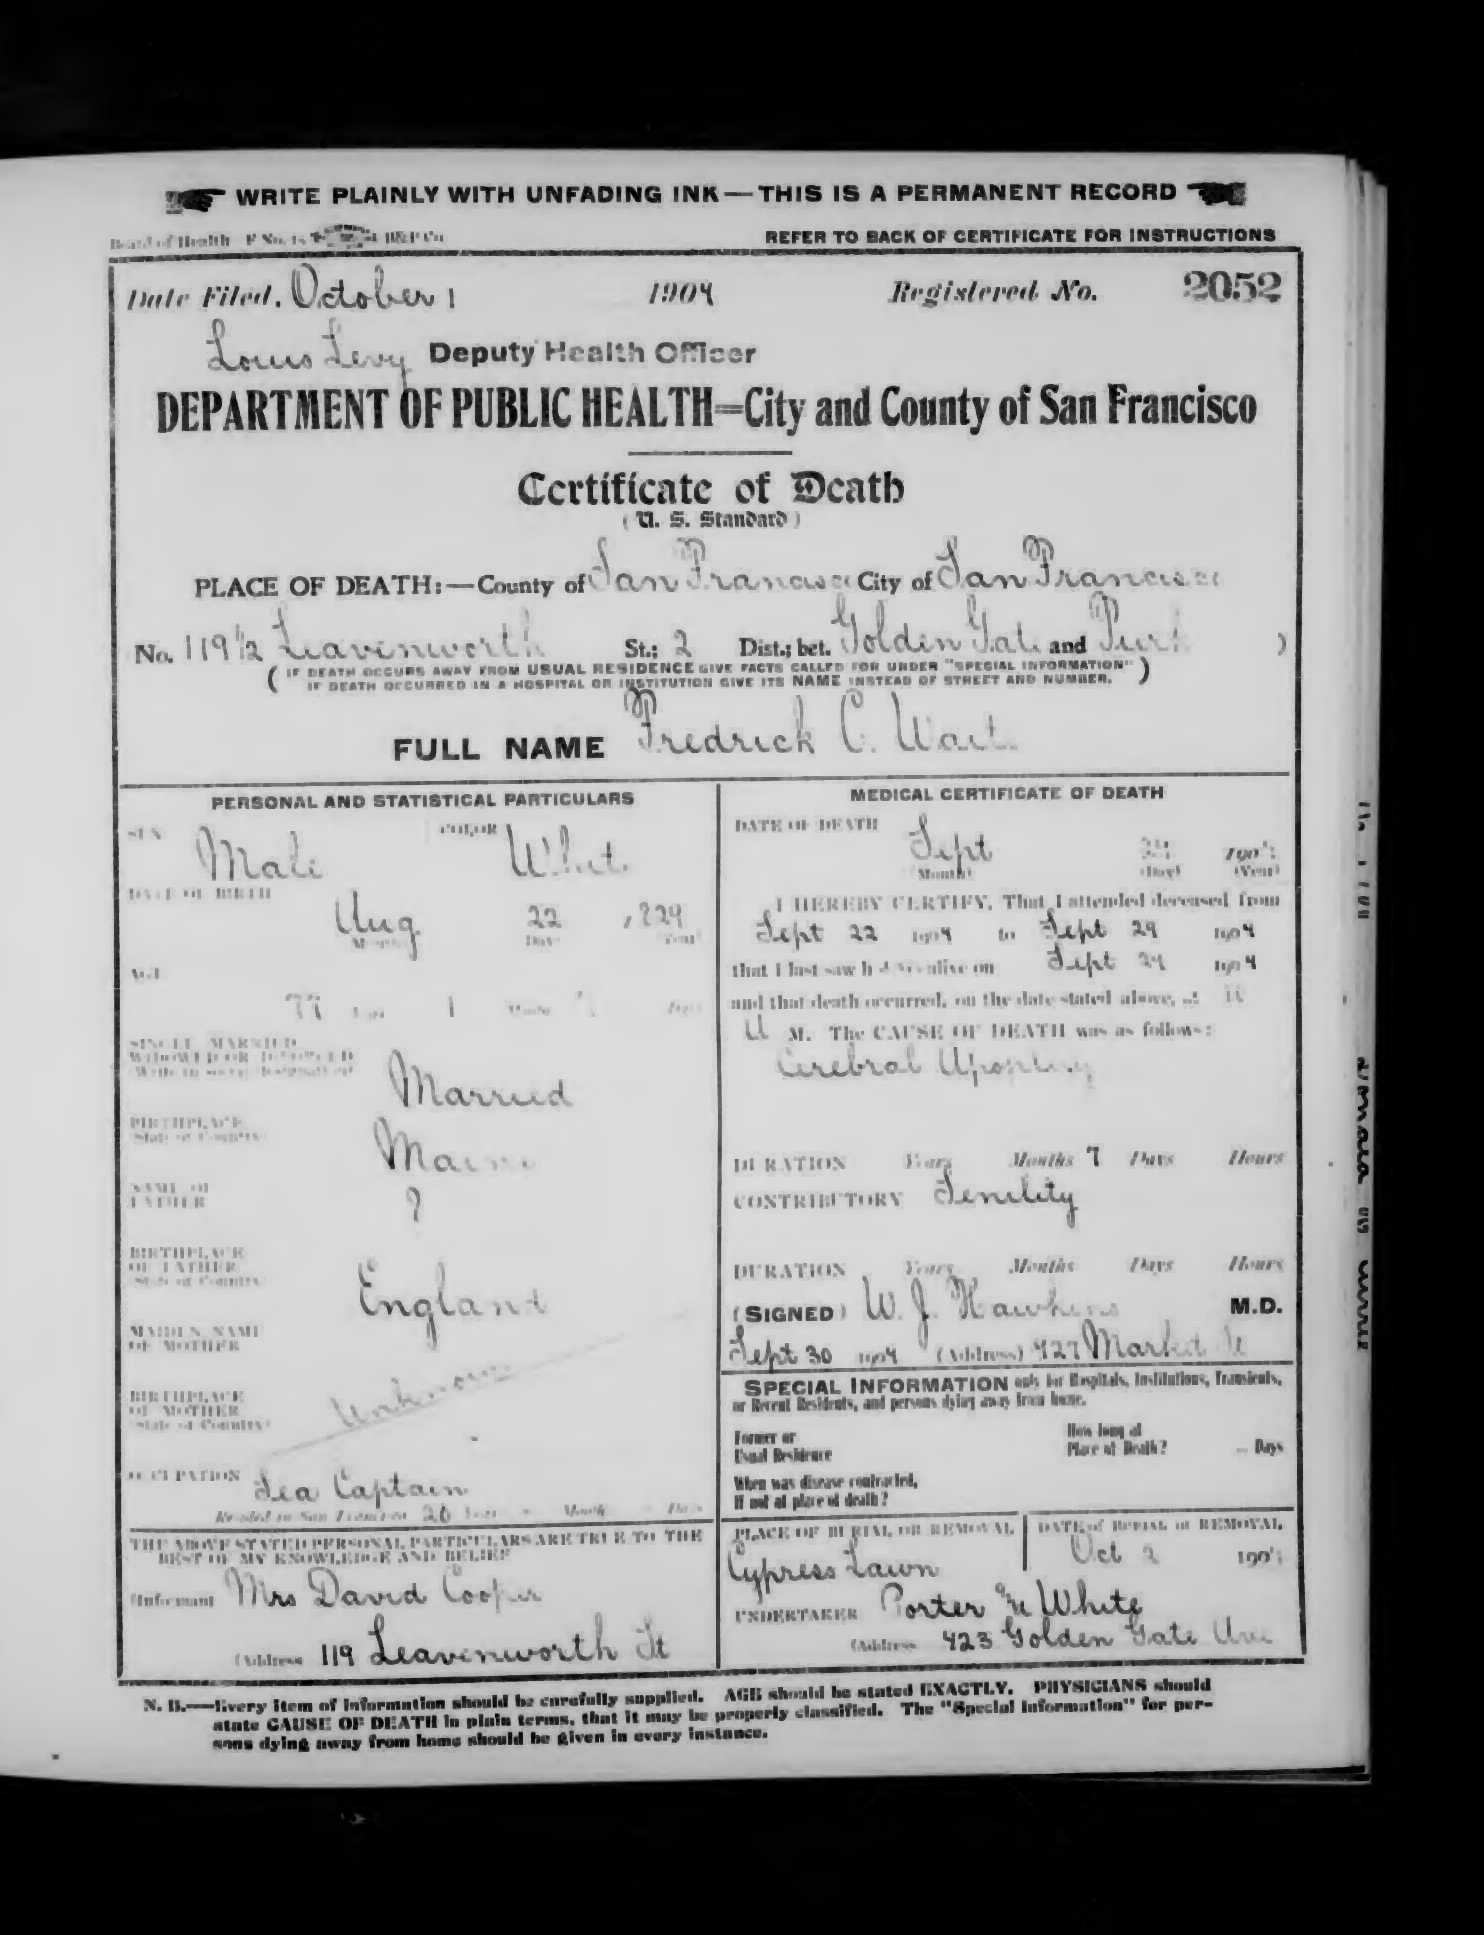 WRITE PLAINLY WITH UNFADING INK — THIS IS A PERMANENT RECORD
Board of Health F No. 15 H&P Co
REFER TO BACK OF CERTIFICATE FOR INSTRUCTIONS
Date Filed, October 1 1904 Registered No. 2052
Louis Levy Deputy Health Officer
DEPARTMENT OF PUBLIC HEALTH=City and County of San Francisco
Certificate of Death
( U. S. Standard )
PLACE OF DEATH:—County of San Francisco City of San Francisco
No. 119 1/2 Leavenworth St.; 2 Dist.; bet. Golden Gate and Turk )
( IF DEATH OCCURS AWAY FROM USUAL RESIDENCE GIVE FACTS CALLED FOR UNDER "SPECIAL INFORMATION" )
IF DEATH OCCURRED IN A HOSPITAL OR INSTITUTION GIVE ITS NAME INSTEAD OF STREET AND NUMBER.
FULL NAME Fredrick C. Wait
PERSONAL AND STATISTICAL PARTICULARS
SEX Male COLOR White
DATE OF BIRTH
Aug 22 1829
Month Day Year
AGE
1
SINGLE, MARRIED
WIDOWED OR DIVORCED
Married
BIRTHPLACE
State or Country
Maine
NAME OF
FATHER
?
BIRTHPLACE
OF FATHER
State or Country
England
MAIDEN NAME
OF MOTHER
BIRTHPLACE
OF MOTHER
State or Country
Unknown
OCCUPATION
Sea Captain
Resided in San Francisco 20 Years - Months Days
THE ABOVE STATED PERSONAL PARTICULARS ARE TRUE TO THE
BEST OF MY KNOWLEDGE AND BELIEF
Informant Mrs David Cooper
(Address 119 Leavenworth St
MEDICAL CERTIFICATE OF DEATH
DATE OF DEATH
Sept 1904
(Month) (Day) (Year)
I HEREBY CERTIFY, That I attended deceased from
Sept 22 1904 to Sept 29 1904
that I last saw h alive on Sept 29 1904
and that death occurred, on the date stated above, at
M. The CAUSE OF DEATH was as follows:
Cerebral Apoplexy
DURATION Years Months 7 Days Hours
CONTRIBUTORY Senility
DURATION Years Months Days Hours
(SIGNED) W. J. Hawkins M.D.
Sept 30 1904 (Address) 927 Market St
SPECIAL INFORMATION only for Hospitals, Institutions, Transients,
or Recent Residents, and persons dying away from home.
Former or
Usual Residence
How long at
Place of Death? Days
When was disease contracted,
If not at place of death?
PLACE OF BURIAL OR REMOVAL
Cypress Lawn
DATE of BURIAL or REMOVAL
Oct 2 1904
UNDERTAKER Porter & White
(Address 423 Golden Gate Ave
N. B.—Every item of information should be carefully supplied. AGE should be stated EXACTLY. PHYSICIANS should
state CAUSE OF DEATH in plain terms, that it may be properly classified. The "Special Information" for per-
sons dying away from home should be given in every instance.